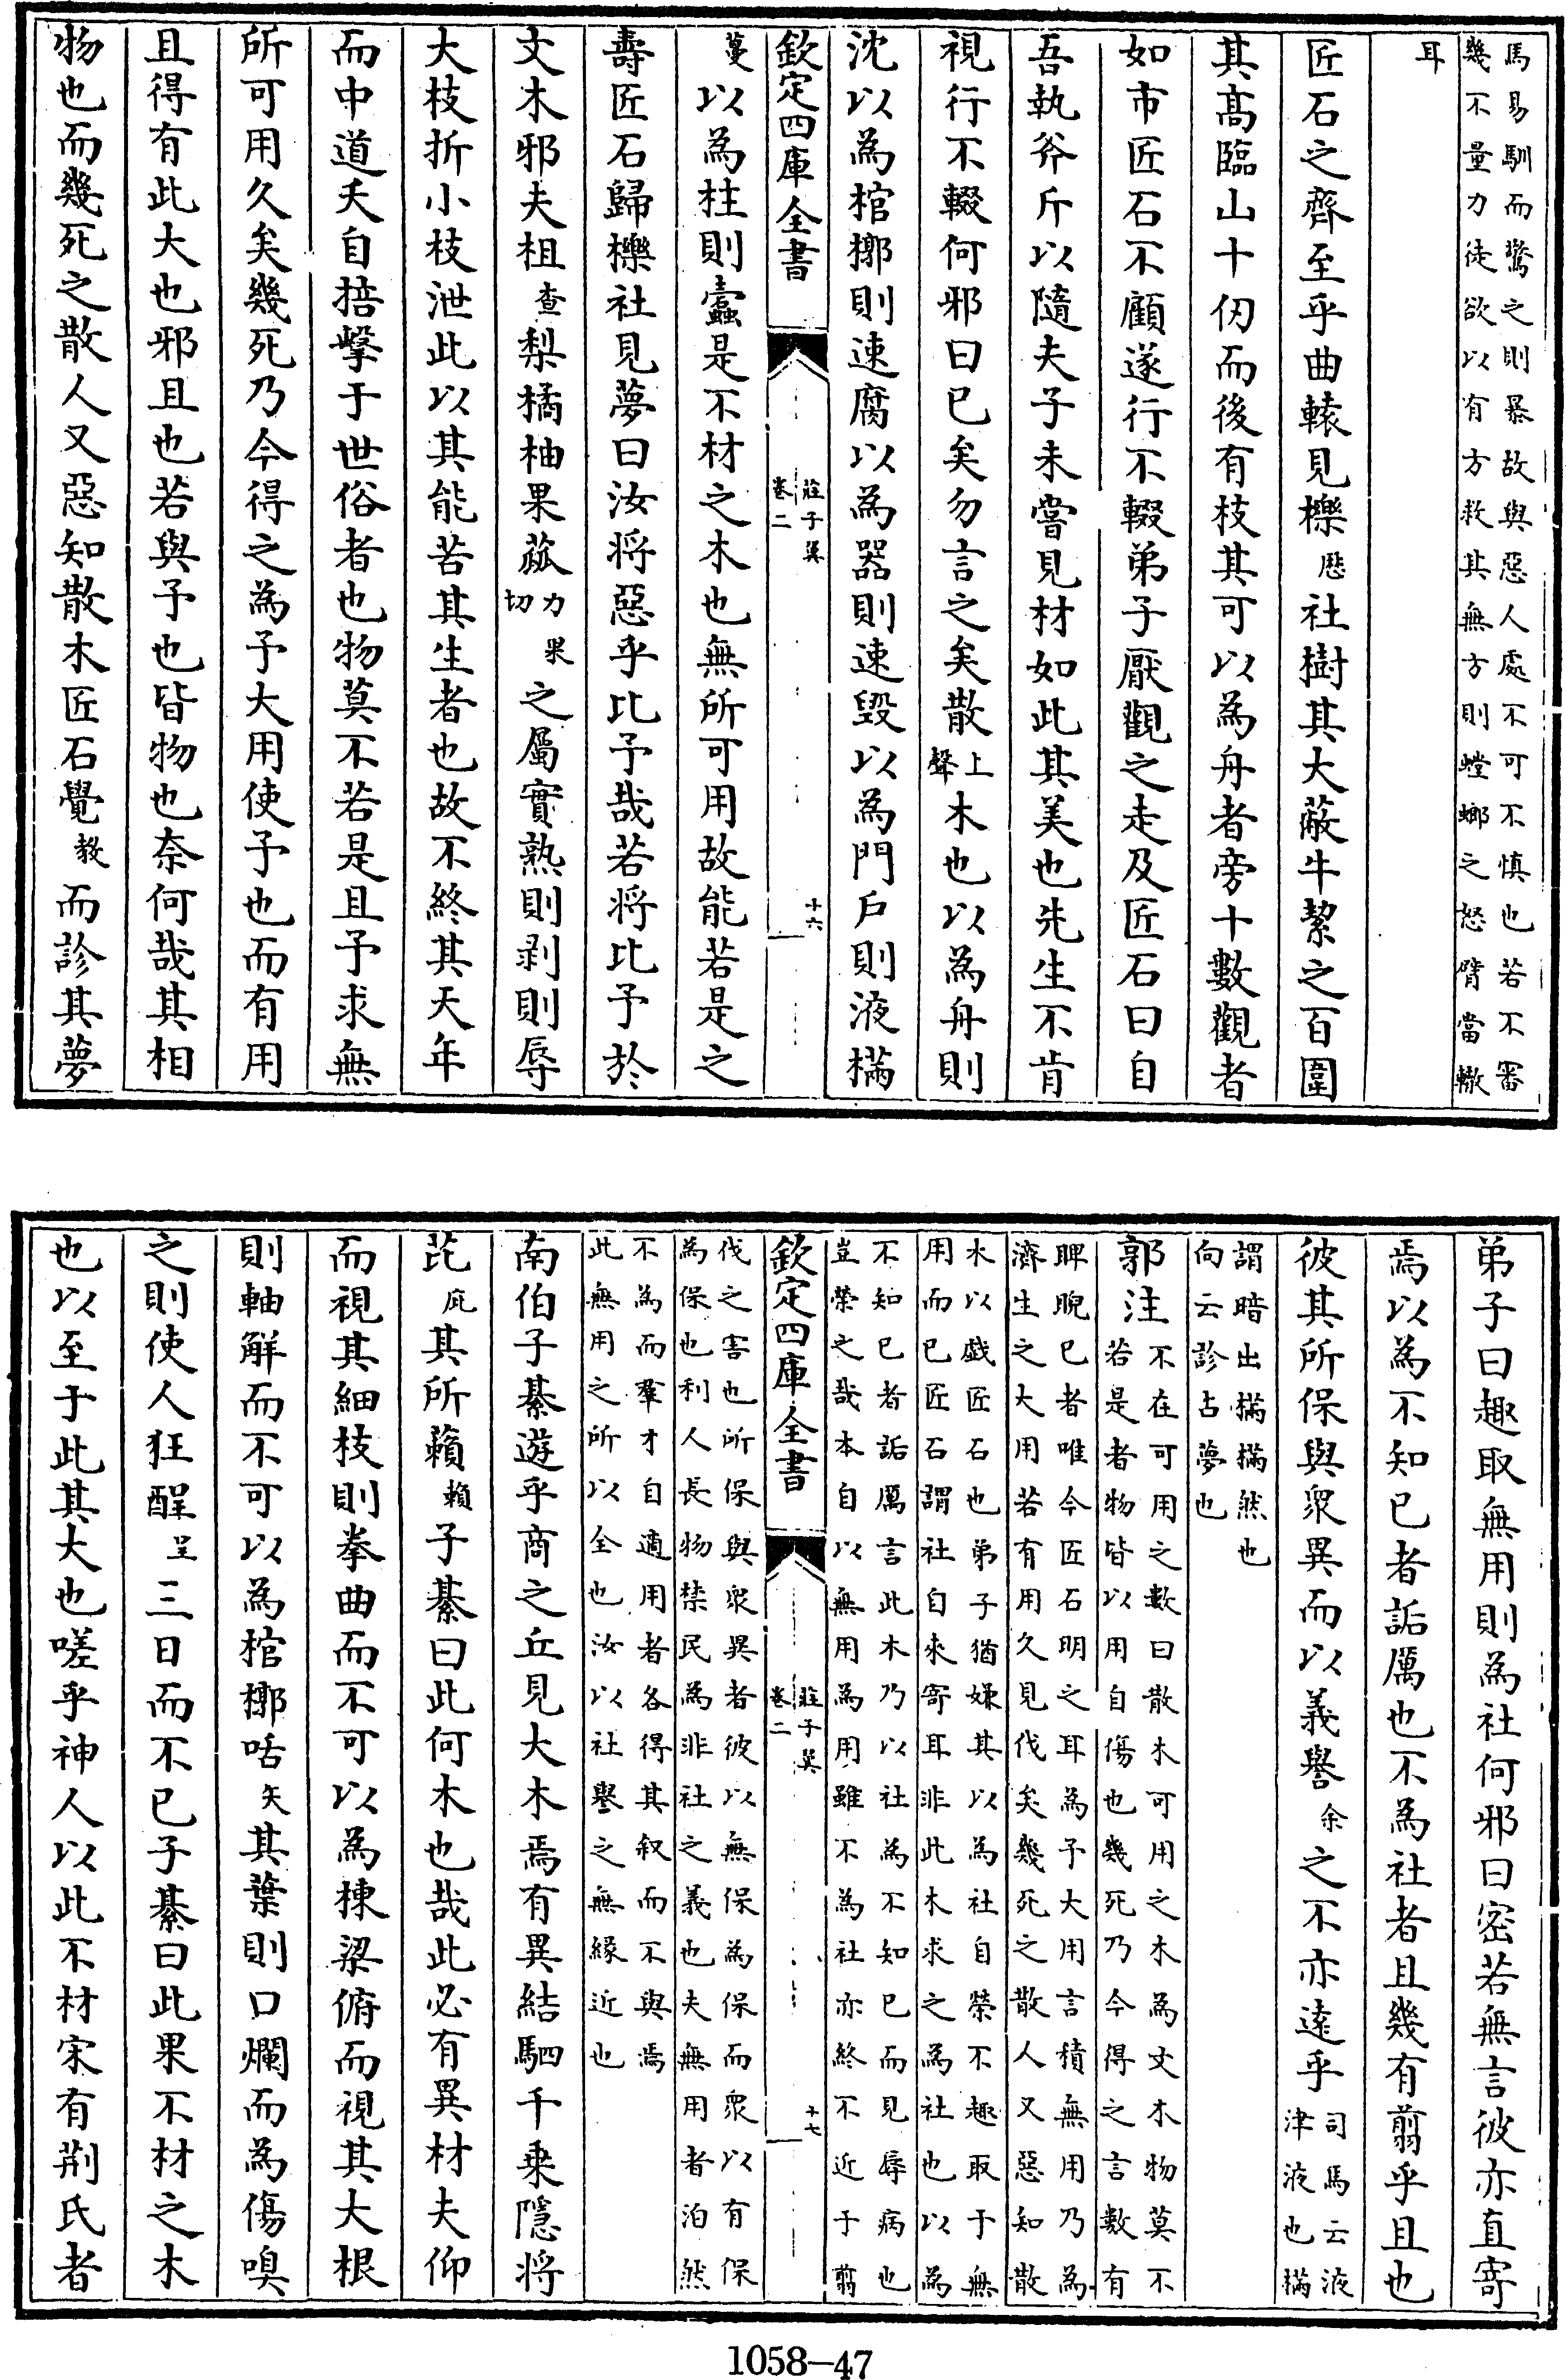 馬易馴而驚之則暴故與惡人處不可不慎也若不審
幾不量力徒欲以有方救其無方則螳螂之怒臂當轍
耳
匠石之齊至乎曲轅見櫟歴社樹其大蔽牛絜之百圍
其髙臨山十仞而後有枝其可以為舟者旁十數觀者
如市匠石不顧遂行不輟弟子厭觀之走及匠石曰自
吾執斧斤以隨夫子未嘗見材如此其美也先生不肯
視行不輟何邪曰已矣勿言之矣散上聲木也以為舟則
沈以為棺槨則速腐以為器則速毀以為門戶則液樠
欽定四庫全書
莊子翼
卷二
十六
蔓以為柱則蠹是不材之木也無所可用故能若是之
壽匠石歸櫟社見夢曰汝将惡乎比予哉若将比予於
文木邪夫柤查梨橘柚果蓏力果切之屬實熟則剥則辱
大枝折小枝泄此以其能苦其生者也故不終其天年
而中道夭自掊擊于世俗者也物莫不若是且予求無
所可用久矣幾死乃今得之為予大用使予也而有用
且得有此大也邪且也若與予也皆物也奈何哉其相
物也而幾死之散人又惡知散木匠石覺教而診其夢
弟子曰趣取無用則為社何邪曰密若無言彼亦直寄
焉以為不知已者詬厲也不為社者且幾有翦乎且也
彼其所保與衆異而以義譽余之不亦逺乎司馬云液
津液也樠
謂暗出樠樠然也
向云診占夢也
郭注不在可用之數曰散木可用之木為文木物莫不
若是者物皆以用自傷也幾死乃今得之言數有
睥睨已者唯今匠石明之耳為予大用言積無用乃為
濟生之大用若有用久見伐矣幾死之散人又惡知散
木以戲匠石也弟子猶嫌其以為社自榮不趣取于無
用而已匠石謂社自來寄耳非此木求之為社也以為
不知已者詬厲言此木乃以社為不知已而見辱病也
豈榮之哉本自以無用為用雖不為社亦終不近于翦
欽定四庫全書
莊子翼
卷二
十七
伐之害也所保與衆異者彼以無保為保而衆以有保
為保也利人長物禁民為非社之義也夫無用者泊然
不為而羣才自適用者各得其叙而不與焉
此無用之所以全也汝以社譽之無緣近也
南伯子綦遊乎商之丘見大木焉有異結駟千乗隱将
芘庇其所藾賴子綦曰此何木也哉此必有異材夫仰
而視其細枝則拳曲而不可以為棟梁俯而視其大根
則軸解而不可以為棺槨咶矢其葉則口爛而為傷嗅
之則使人狂酲呈三日而不已子綦曰此果不材之木
也以至于此其大也嗟乎神人以此不材宋有荆氏者
1058-47